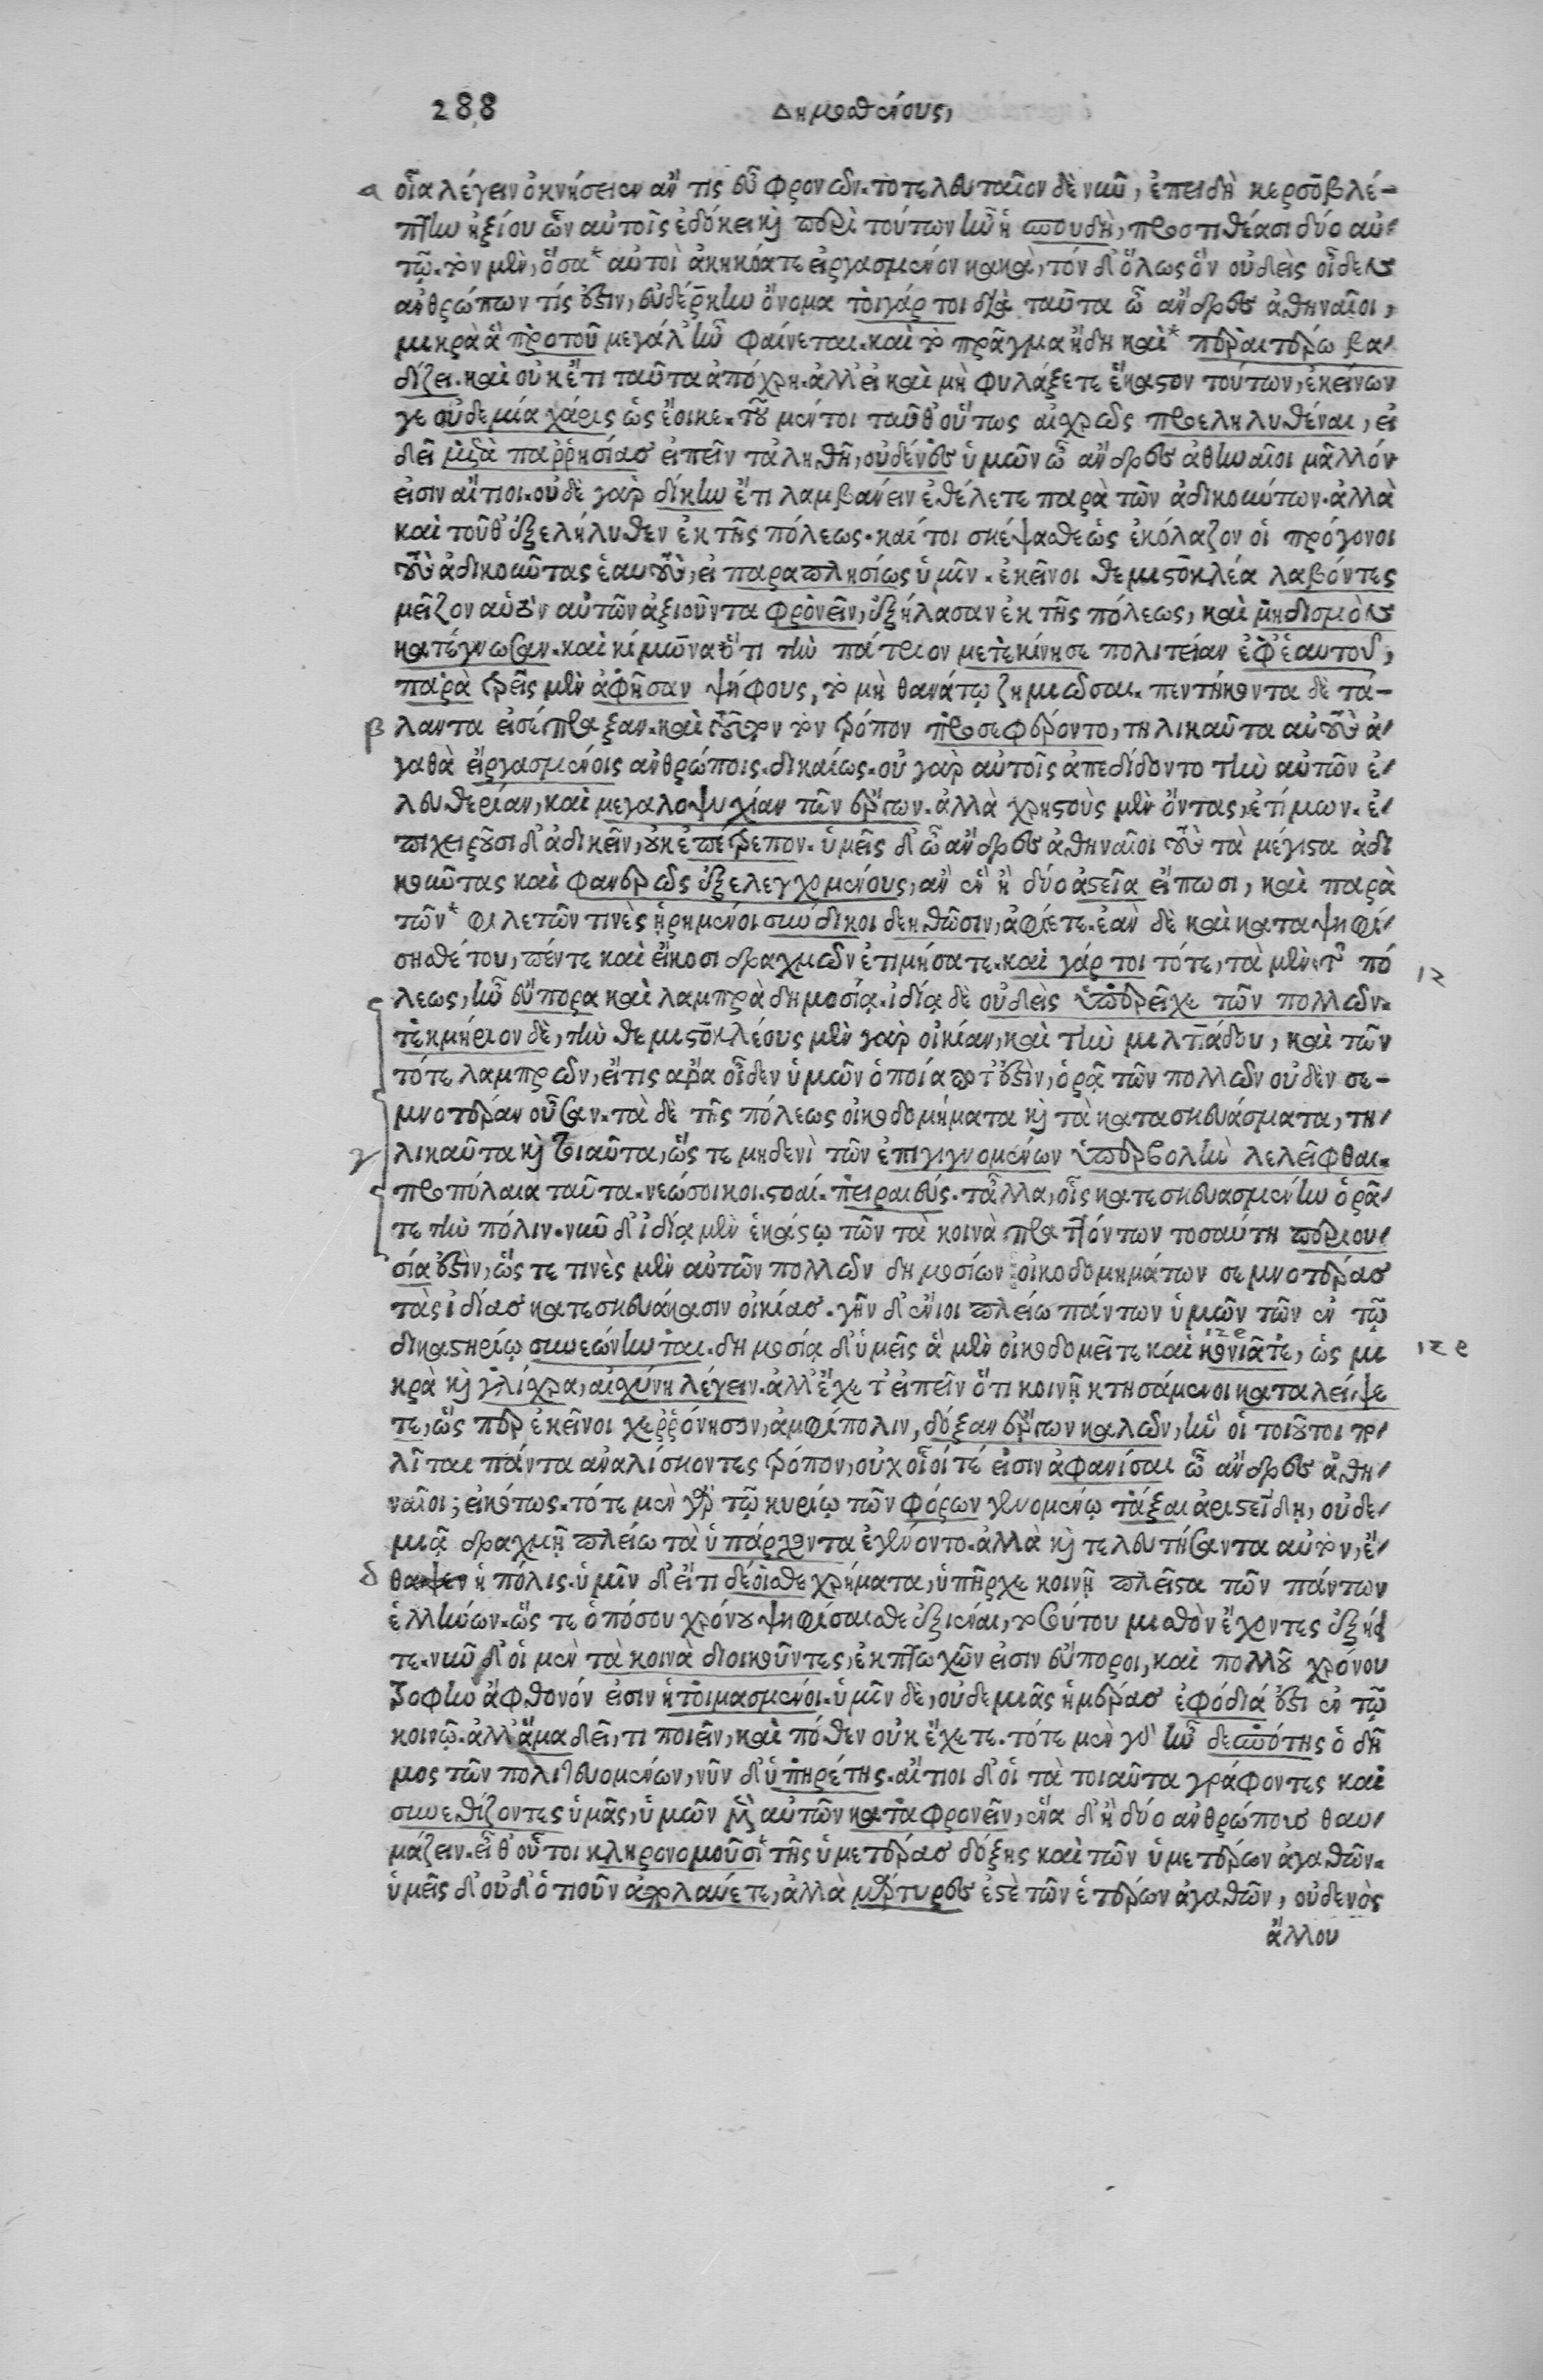 288 Δημοσθένους,
α οἷα λέγειν ὀκνήσειεν ἄν τις εὖ φρονῶν. τὸ τελευταῖον δὲ νῦν, ἐπειδὴ κερσοβλέ-
πτην ἠξίου ὧν αὐτοῖς ἐδόκει καὶ περὶ τούτων ἦν ἡ σπουδὴ, προστιθέασι δύο αὐ-
τῷ. τὸν μὲν, ὅσα* αὐτοὶ ἀκηκόατε εἰργασμένον κακὰ, τόν δ' ὅλως ὅν οὐδεὶς οἶδεν
ἀνθρώπων τίς ἐστιν, εὐδέρκην ὄνομα τοιγάρ τοι διὰ ταῦτα ὦ ἄνδρες ἀθηναῖοι,
μικρὰ ἃ πρὸ τοῦ μεγάλ' ἦν φαίνεται. καὶ τὸ πρᾶγμα ἤδη καὶ* περαιτέρω βα-
δίζει. καὶ οὐκ ἔτι ταῦτα ἀπόχρη. ἀλλ' εἰ καὶ μὴ φυλάξετε ἕκαστον τούτων, ἐκείνων
γε οὐδεμία χάρις ὡς ἔοικε. τοῦ μέντοι ταῦθ' οὕτως αἰσχρῶς προεληλυθέναι, εἰ
δεῖ μετὰ παρρησίας εἰπεῖν τἀληθῆ, οὐδένες ὑμῶν ὦ ἄνδρες ἀθηναῖοι μᾶλλόν
εἰσιν αἴτιοι. οὐδὲ γὰρ δίκην ἔτι λαμβάνειν ἐθέλετε παρὰ τῶν ἀδικούντων. ἀλλὰ
καὶ τοῦθ' ἐξελήλυθεν ἐκ τῆς πόλεως. καίτοι σκέψασθε ὡς ἐκόλαζον οἱ πρόγονοι
τοὺς ἀδικοῦντας ἑαυτοὺς, εἰ παραπλησίως ὑμῖν. ἐκεῖνοι θεμιστοκλέα λαβόντες
μεῖζον αὐτὸν αὑτῶν ἀξιοῦντα φρονεῖν, ἐξήλασαν ἐκ τῆς πόλεως, καὶ μηδισμὸν
κατέγνωσαν. καὶ κίμωνα ὅτι τὴν πάτριον μετεκίνησε πολιτείαν ἐφ' ἑαυτοῦ,
παρὰ τρεῖς μὲν ἀφῆσαν ψήφους, τὸ μὴ θανάτῳ ζημιῶσαι. πεντήκοντα δὲ τά-
β λαντα εἰσέπραξαν. καὶ τοῦτον τὸν τρόπον προσεφέροντο, τηλικαῦτα αὐτοὺς ἀ-
γαθὰ εἰργασμένοις ἀνθρώποις. δικαίως. οὐ γὰρ αὐτοῖς ἀπεδίδοντο τὴν αὑτῶν ἐ-
λευθερίαν, καὶ μεγαλοψυχίαν τῶν ἔργων. ἀλλὰ χρηστοὺς μὲν ὄντας, ἐτίμων. ἐ-
πιχειροῦσι δ' ἀδικεῖν, οὐκ ἐπέτρεπον. ὑμεῖς δ' ὦ ἄνδρες ἀθηναῖοι τοὺς τὰ μέγιστα ἀδι
κοῦντας καὶ φανερῶς ἐξελεγχομένους, ἂν ἓν ἢ δύο ἀστεῖα εἴπωσι, καὶ παρὰ
τῶν* φιλετῶν τινὲς ᾑρημένοι σύνδικοι δεηθῶσιν, ἀφίετε. ἐὰν δὲ καὶ καταψηφί-
σησθέ του, πέντε καὶ εἴκοσι δραχμῶν ἐτιμήσατε. καὶ γάρ τοι τότε, τὰ μὲν τῆς πό
λεως, ἦν εὔπορα καὶ λαμπρὰ δημοσίᾳ. ἰδίᾳ δὲ οὐδεὶς ὑπερεῖχε τῶν πολλῶν.
τεκμήριον δὲ, τὴν θεμιστοκλέους μὲν γὰρ οἰκίαν, καὶ τὴν μιλτιάδου, καὶ τῶν
τότε λαμπρῶν, εἴτις ἄρα οἶδεν ὑμῶν ὁποία ποτ' ἐστὶν, ὁρᾷ τῶν πολλῶν οὐδὲν σε-
μνοτέραν οὖσαν. τὰ δὲ τῆς πόλεως οἰκοδομήματα καὶ τὰ κατασκευάσματα, τη-
γ λικαῦτα καὶ τοιαῦτα, ὥστε μηδενὶ τῶν ἐπιγιγνομένων ὑπερβολὴν λελεῖφθαι.
προπύλαια ταῦτα. νεώσοικοι. στοαί. πειραιεύς. τἄλλα, οἷς κατεσκευασμένην ὁρᾶ-
τε τὴν πόλιν. νῦν δ' ἰδίᾳ μὲν ἑκάστῳ τῶν τὰ κοινὰ πραττόντων τοσαύτη περιου-
σία ἐστὶν, ὥστε τινὲς μὲν αὐτῶν πολλῶν δημοσίων οἰκοδομημάτων σεμνοτέρας
τὰς ἰδίας κατεσκευάκασιν οἰκίας. γῆν δ' ἔνιοι πλείω πάντων ὑμῶν τῶν ἐν τῷ
δικαστηρίῳ συνεώνηνται. δημοσίᾳ δ' ὑμεῖς ἃ μὲν οἰκοδομεῖτε καὶ κονιᾶτε, ὡς μι
κρὰ καὶ γλίσχρα, αἰσχύνη λέγειν. ἀλλ' ἔχετ' εἰπεῖν ὅτι κοινῇ κτησάμενοι καταλείψε
τε, ὥσπερ ἐκεῖνοι χερρόνησον, ἀμφίπολιν, δόξαν ἔργων καλῶν, ἣν οἱ τοιοῦτοι πο-
λῖται πάντα ἀναλίσκοντες τρόπον, οὐχ οἷοί τέ εἰσιν ἀφανίσαι ὦ ἄνδρες ἀθη-
ναῖοι; εἰκότως. τότε μὲν γὰρ τῷ κυρίῳ τῶν φόρων γενομένῳ τάξαι ἀριστείδῃ, οὐδε-
μιᾷ δραχμῇ πλείω τὰ ὑπάρχοντα ἐγένοντο. ἀλλὰ καὶ τελευτήσαντα αὐτὸν, ἔ-
δ θαψεν ἡ πόλις. ὑμῖν δ' εἴ τι δέοισθε χρήματα, ὑπῆρχε κοινῇ πλεῖστα τῶν πάντων
ἑλλήνων. ὥστε ὁπόσου χρόνου ψηφίσαισθε ἐξιέναι, τοσούτου μισθὸν ἔχοντες ἐξῇ
τε. νῦν δ' οἱ μὲν τὰ κοινὰ διοικοῦντες, ἐκ πτωχῶν εἰσιν εὔποροι, καὶ πολλοῦ χρόνου
τροφὴν ἄφθονόν εἰσιν ἡτοιμασμένοι. ὑμῖν δὲ, οὐδεμιᾶς ἡμέρας ἐφόδιά ἐστι ἐν τῷ
κοινῷ. ἀλλ' ἅμα δεῖ, τι ποιεῖν, καὶ πόθεν οὐκ ἔχετε. τότε μὲν γὰρ ἦν δεσπότης ὁ δῆ
μος τῶν πολιτευομένων, νῦν δ' ὑπηρέτης. αἴτιοι δ' οἱ τὰ τοιαῦτα γράφοντες καὶ
συνεθίζοντες ὑμᾶς, ὑμῶν μὲν αὐτῶν καταφρονεῖν, ἕνα δ' ἢ δύο ἀνθρώπους θαυ-
μάζειν. εἶθ' οὗτοι κληρονομοῦσι τῆς ὑμετέρας δόξης καὶ τῶν ὑμετέρων ἀγαθῶν.
ὑμεῖς δ' οὐδ' ὁτιοῦν ἀπολαύετε, ἀλλὰ μάρτυρες ἐστὲ τῶν ἑτέρων ἀγαθῶν, οὐδενὸς
ἄλλου